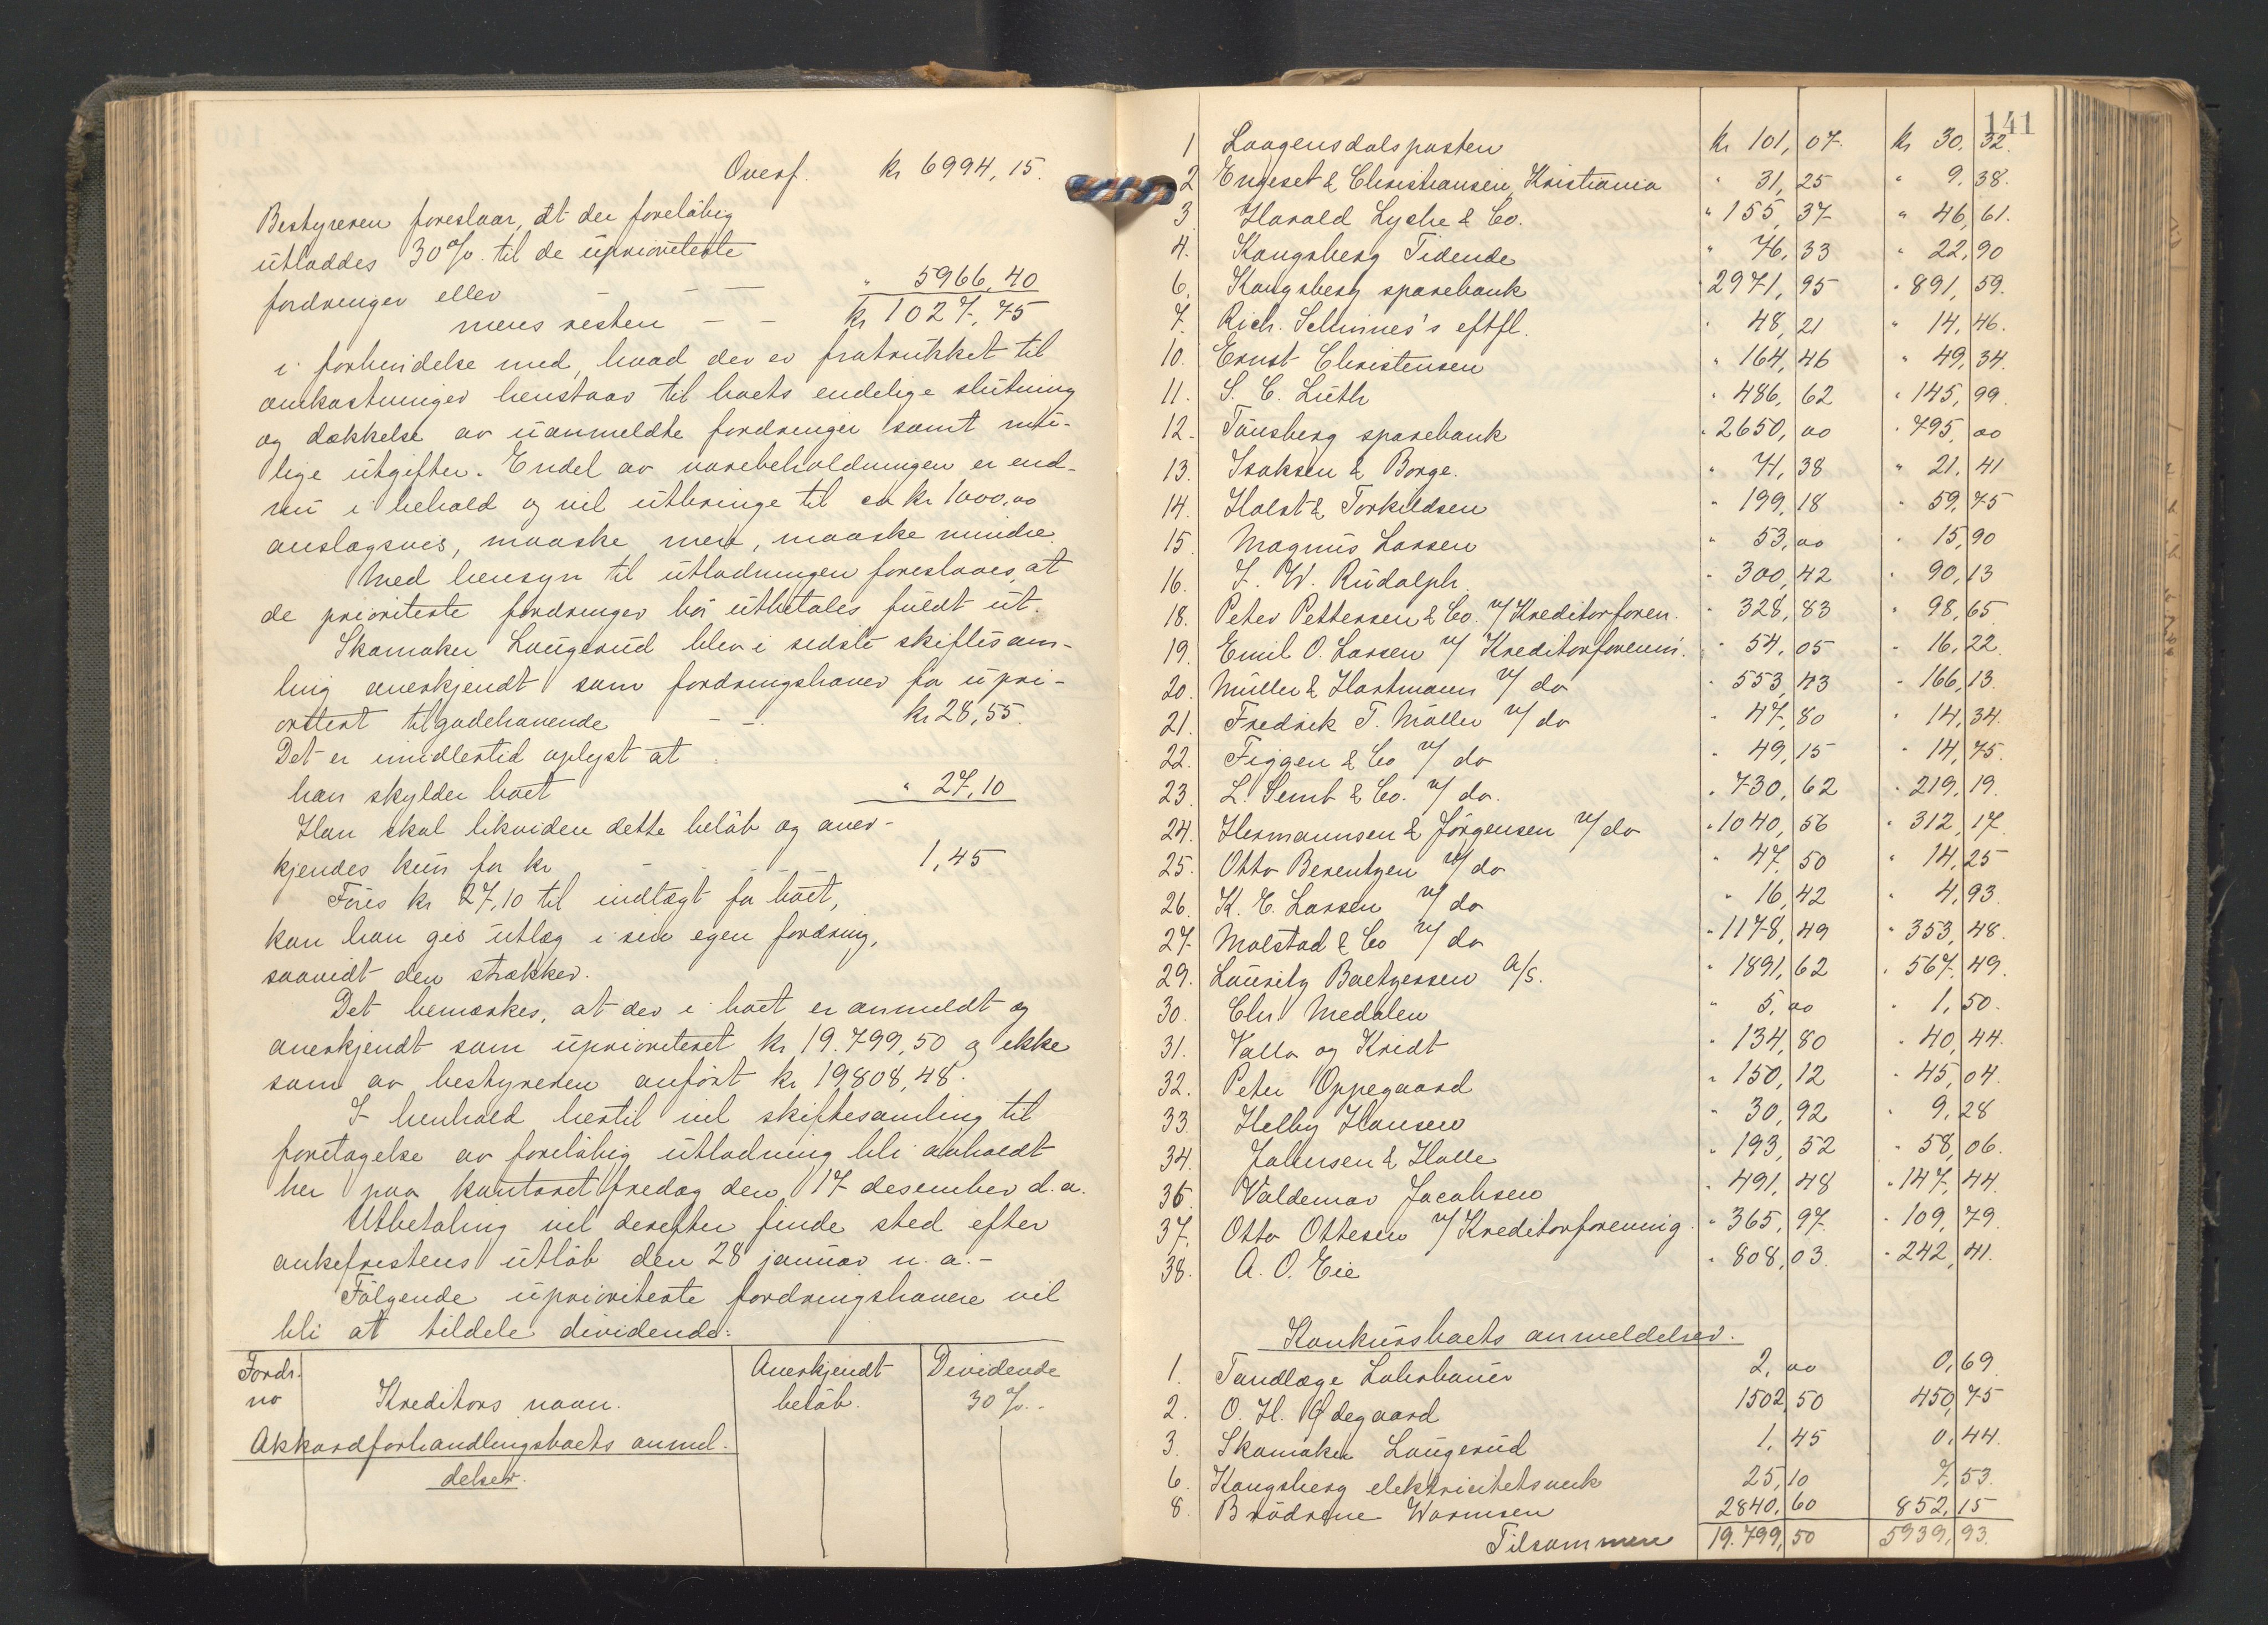 Overf. kr 6994,15.
Bestyreren foreslaar, at der foreløbig
utloddes 30% til de uprioriterte
fordringer eller — — — " 5966,40
mens resten — — kr 1027,75
i forbindelse med, hvad der er fratrukket til
omkostninger henstaar til boets endelige slutning
og dækkelse av uanmeldte fordringer samt mu-
lige utgifter. Endel av varebeholdningen er end-
nu i behold og vil utbringe til ca kr 1000,00
anslagsvis, maaske mer, maaske mindre.
Med hensyn til utlodningen foreslaaes, at
de prioriterte fordringer bør utbetales fuldt ut.
Skomaker Laugerud blev i sidste skiftesam-
ling anerkjendt som fordringshaver for upri-
oritert tilgodehavende — — kr 28,55.
Det er imidlertid oplyst at
han skylder boet " 27,10
Han skal likvidere dette beløb og aner-
kjendes kun for kr — — — 1,45
Føres kr 27,10 til indtægt for boet,
kan han gis utlæg i sin egen fordring,
saavidt den strækker.
Det bemerkes, at der i boet er anmeldt og
anerkjendt som uprioriteret kr. 19.799,50 og ikke
som av bestyreren anført kr 19808,48.
I henhold hertil vil skiftesamling til
foretagelse av foreløbig utlodning bli avholdt
her paa kontoret fredag den 17 desember d.a.
Utbetaling vil derefter finde sted efter
ankefristens utløb den 28 januar n.a.-
Følgende uprioriterte fordringshavere vil
bli at tildele dividende:
Fordr. no Kreditors navn. Anerkjendt beløb. Dividende 30%.-
Akkordforhandlingsboets anmel-
delser.
141
1 Laagendalsposten kr 101,07. kr 30,32.
2 Engeset & Christiansen, Kristiania " 31,25 " 9,38.
3. Harald Lyche & Co. " 155,37 " 46,61.
4. Kongsberg Tidende " 76,33 " 22,90
6. Kongsberg sparebank " 2971,95 " 891,59.
7. Rich. Schinnes's eftfl. " 48,21 " 14,46.
10. Ernst Christensen " 164,46 " 49,34.
11. S. C. Luth " 486,62 " 145,99.
12. Tønsberg sparebank " 2650,00 " 795,00
13. Isaksen & Borge. " 71,38 " 21,41
14. Holst & Torkildsen " 199,18 " 59,75
15 Magnus Larsen " 53,00 " 15,90
16. F. W. Rudolph. " 300,42 " 90,13
18. Peter Pettersen & Co. v/ Kreditorforen. " 328,83 " 98,65
19. Emil O. Larsen v/ Kreditorforenin. " 54,05 " 16,22.
20. Müller & Hartmann v/ do " 553,43 " 166,13.
21. Fredrik T. Møller v/ do " 47,80 " 14,34.
22. Figgen & Co v/ do " 49,15 " 14,75.
23. L. Semb & Co. v/ do. " 730,62 " 219,19.
24. Hermannsen & Jørgensen v/ do " 1040,56 " 312,17.
25. Otto Berentzen v/ do " 47,50 " 14,25
26. K. E. Larsen v/ do " 16,42 " 4,93.
27. Molstad & Co v/ do " 1178,49 " 353,48.
29. Lauritz Baetzersen A/S. " 1891,62 " 567,49.
30. Chr. Medalen " 5,00 " 1,50.
31. Vallo og Kridt " 134,80 " 40,44.
32. Peter Oppegaard " 150,12 " 45,04.
33. Helby Hansen " 30,92 " 9,28
34. Johnsen & Halle " 193,52 " 58,06.
36 Valdemar Jacobsen " 491,48 " 147,44.
37. Otto Ottesen v/ Kreditorforening. " 365,97 " 109,79.
38. A. O. Eie " 808,03. " 242,41.
Konkursboets anmeldelser.
1. Tandlæge Lohrbauer 2,00 0,69
2. O. H. Ødegaard 1502,50 450,75
3. Skomaker Laugerud 1,45 0,44.
6. Kongsberg elektricitetsverk 25,10 7,53.
8. Brødrene Warmsen 2840,60 852,15
Tilsammen 19.799,50 5939,93.